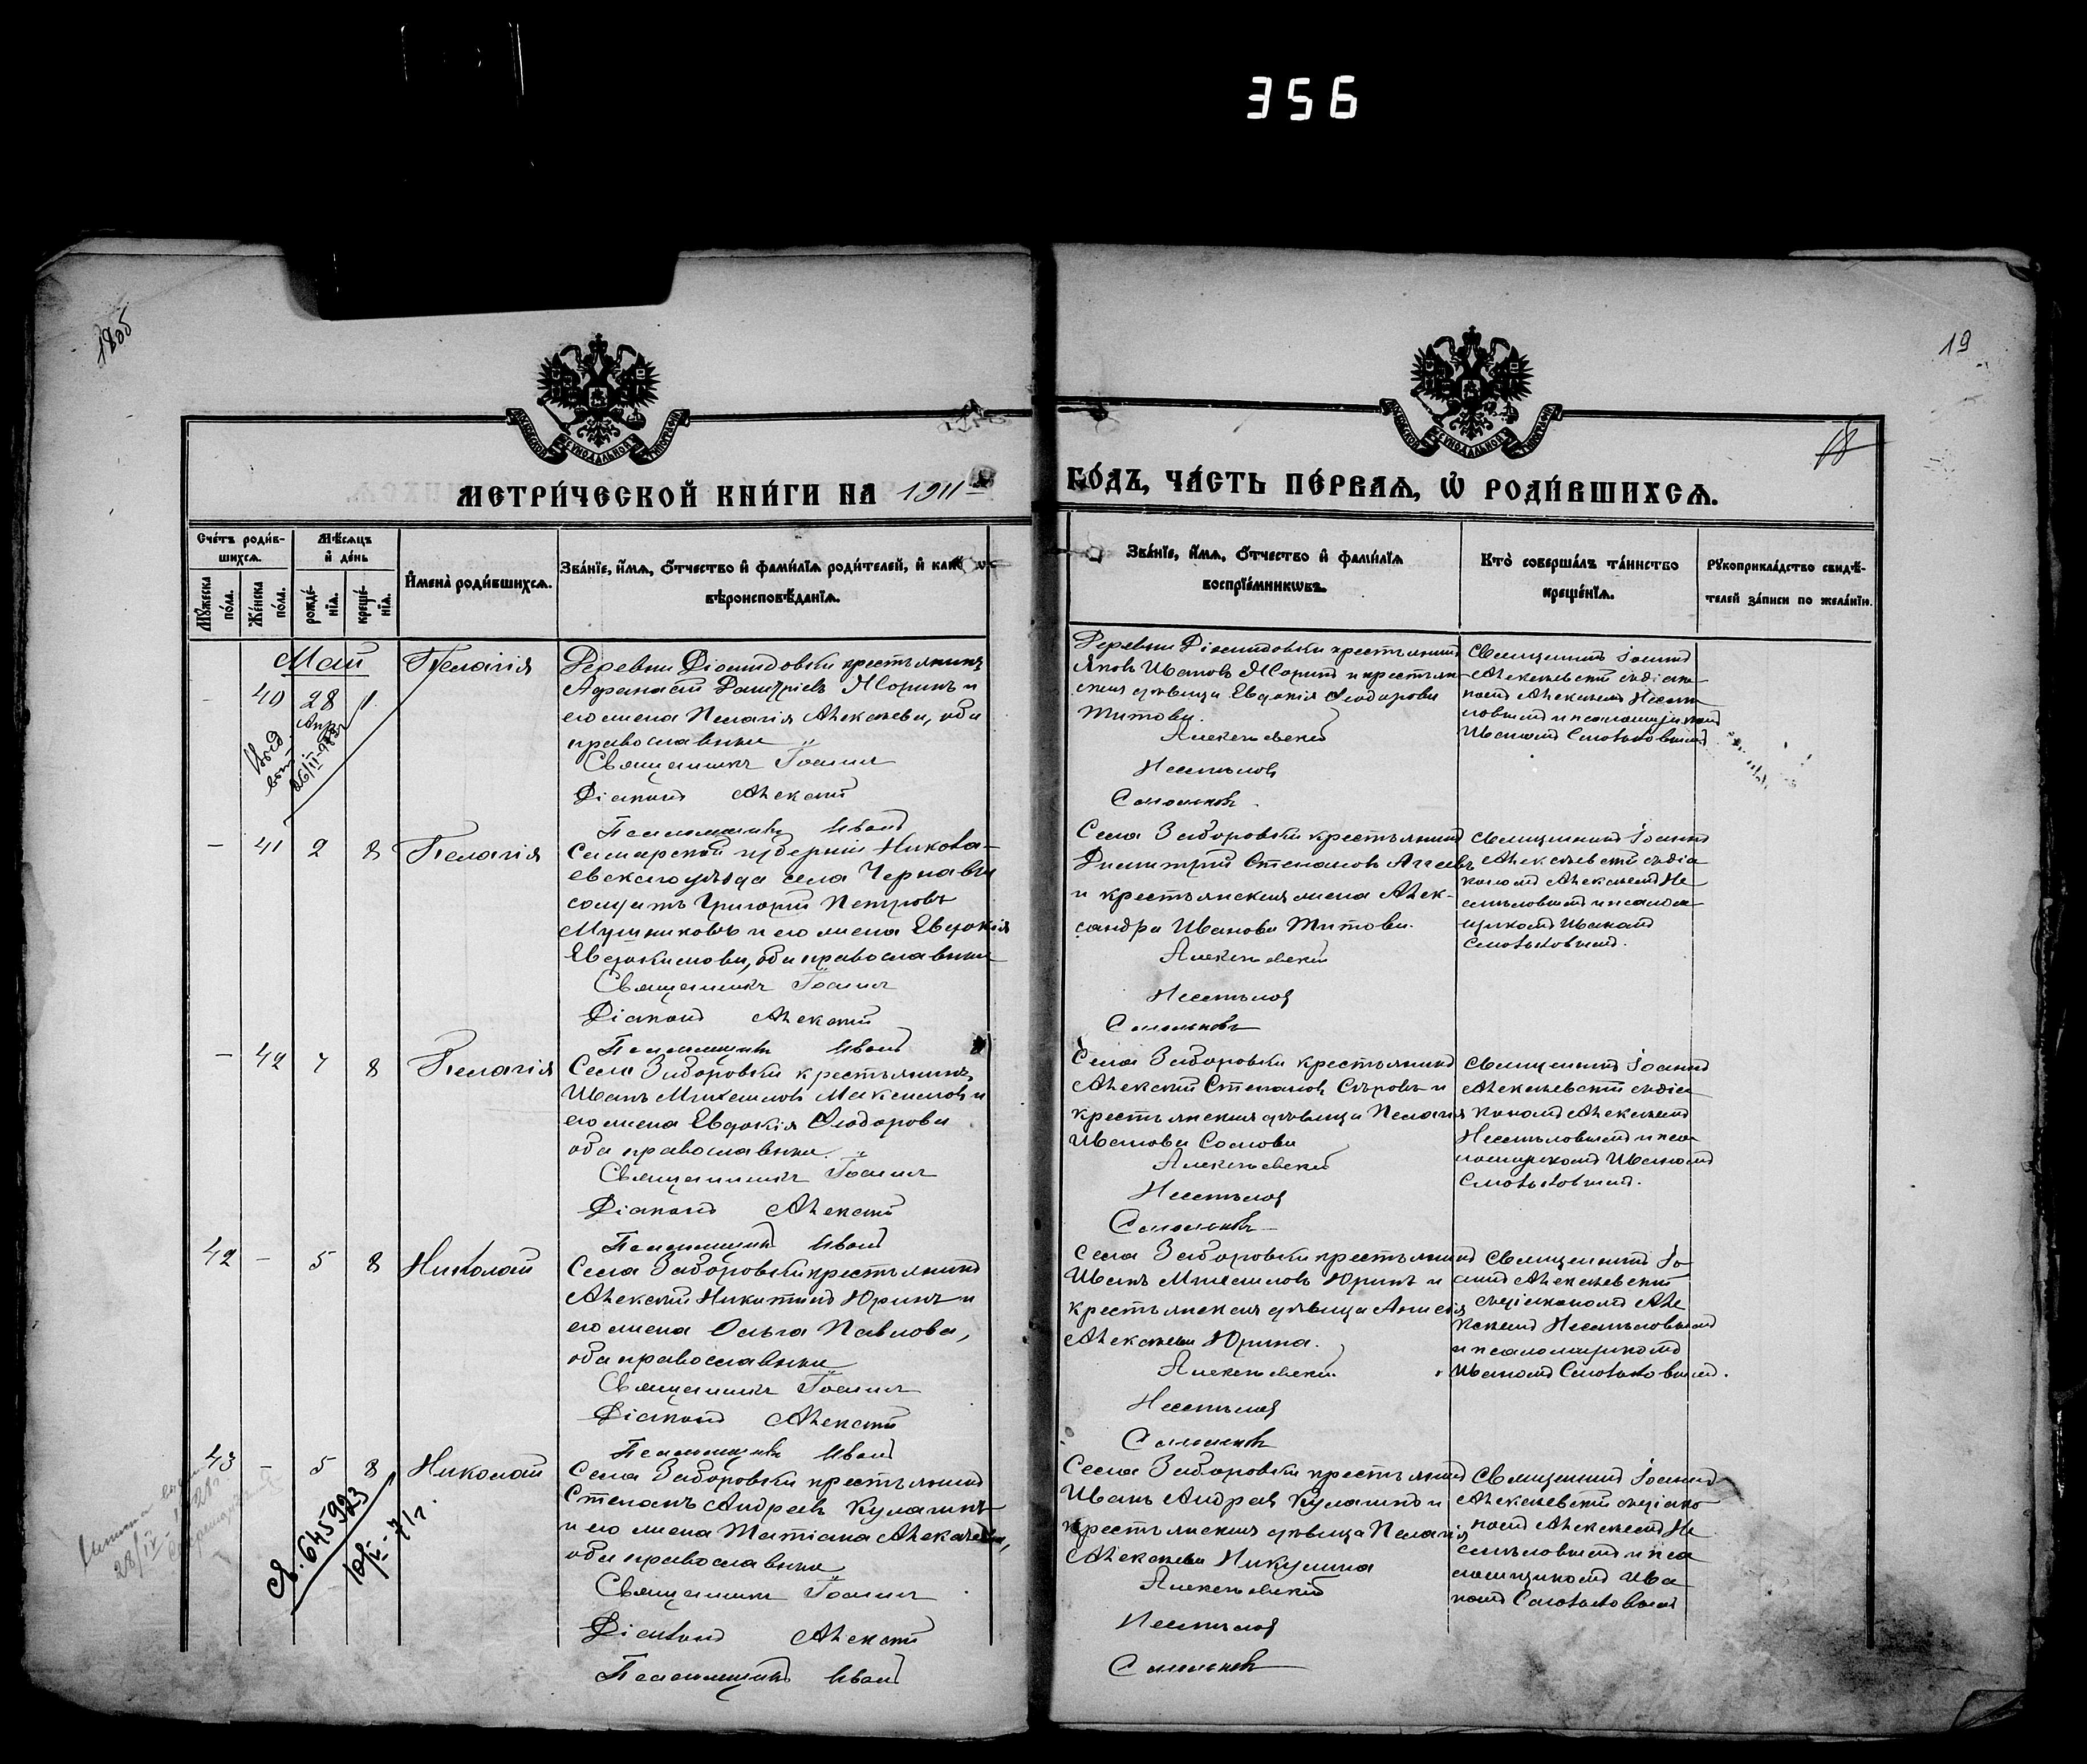 356
1805
19
18
МЕТРИ́ЧЕСКОЙ КНИ́ГИ НА 1911
ГО́ДЪ, ЧА́СТЬ ПЕ́РВАѦ, Ѡ РОДИ́ВШИХСѦ.
Сче́тъ роди́в-
шихсѧ.
Мѣ́сѧцъ
и де́нь
Мꙋ́жеска по́ла.
Же́нска по́ла.
рожде́-
нїѧ.
креще́-
нїѧ.
И҆мена̀ роди́вшихсѧ.
Зва́нїе, и҆́мѧ, ѻ҆́тчество и҆ фами́лїѧ роди́телей, и҆ како́гѡ
вѣроисповѣ́данїѧ.
Зва́нїе, и҆́мѧ, ѻ҆́тчество и҆ фами́лїѧ
воспрїе́мникѡвъ.
Кто̀ соверша́лъ та́инство
креще́нїѧ.
Рꙋкоприкла́дство свидѣ́-
телей за́писи по жела́нїю.
Май
- 40 28 1. Пелагія
Апр
26/II-1983г
Деревни Діомидовки крестьянинъ
Афанасій Димитріевъ Яворинъ и
его жена Пелагія Алексѣева, оба
православные
Священникъ Іоаннъ
Діаконъ Алексій
Псаломщикъ Иванъ
Деревни Діомидовки крестьянинъ
Яковъ Ивановъ Яворинъ и крестьян-
ская дѣвица Евдокія Ѳеодорова
Титова.
Алексѣевскій
Несмѣловъ
Смольковъ.
Священникъ Іоаннъ
Алексѣевскій съ діако-
номъ Алексѣемъ Несмѣ-
ловымъ и псаломщикомъ
Иваномъ Смольковымъ
- 41 2 8 Пелагія
Самарской губерніи Никола-
евскаго уѣзда села Чернавы
солдатъ Григорій Петровъ
Мушниковъ и его жена Евдокія
Евдокимова, оба православные
Священникъ Іоаннъ
Діаконъ Алексій
Псаломщикъ Иванъ
Села Заборовки крестьянинъ
Димитрій Степановъ Агеевъ
и крестьянская жена Алек-
сандра Иванова Титова.
Алексѣевскій
Несмѣловъ
Смольковъ
Священникъ Іоаннъ
Алексѣевскій съ діа-
кономъ Алексѣемъ Не-
смѣловымъ и псалом-
щикомъ Иваномъ
Смольковымъ.
- 42 7 8 Пелагія
Села Заборовки крестьянинъ
Иванъ Михаиловъ Максимовъ и
его жена Евдокія Ѳеодорова
оба православные.
Священникъ Іоаннъ
Діаконъ Алексій
Псаломщикъ Иванъ
Села Заборовки крестьянинъ
Алексій Степановъ Сѣровъ и
крестьянская дѣвица Пелагія
Иванова Сомова
Алексѣевскій
Несмѣловъ
Смольковъ
Священникъ Іоаннъ
Алексѣевскій съ діа-
кономъ Алексѣемъ
Несмѣловымъ и пса-
ломщикомъ Иваномъ
Смольковымъ.
42 - 5 8 Николай
Села Заборовки крестьянинъ
Алексій Никитинъ Юринъ и
его жена Ольга Павлова,
оба православные
Священникъ Іоаннъ
Діаконъ Алексій
Псаломщикъ Иванъ
Села Заборовки крестьянинъ
Иванъ Михаиловъ Юринъ и
крестьянская дѣвица Анисія
Алексѣева Юрина.
Алексѣевскій
Несмѣловъ
Смольковъ
Священникъ Іо-
аннъ Алексѣевскій
съ діакономъ Але-
ксѣемъ Несмѣловымъ
и псаломщикомъ
Иваномъ Смольковымъ.
43 - 5 8 Николай
св. 645923
28/IV-1928г.
Села Заборовки крестьянинъ
Степанъ Андреевъ Кулагинъ
и его жена Татіана Алексѣева,
оба православные
Священникъ Іоаннъ
Діаконъ Алексій
Псаломщикъ Иванъ
Села Заборовки крестьянинъ
Иванъ Андреевъ Кулагинъ и
крестьянская дѣвица Пелагія
Алексѣева Никулина
Алексѣевскій
Несмѣловъ
Смольковъ
Священникъ Іоаннъ
Алексѣевскій съ діако-
номъ Алексѣемъ Не-
смѣловымъ и пса-
ломщикомъ Ива-
номъ Смольковымъ